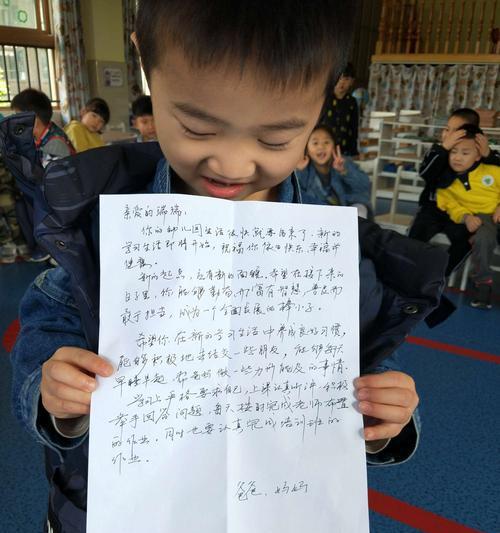 亲爱的瑞瑞:
你的幼儿园生活很快就要结束了,新的
学习生活即将开始,祝福你依旧快乐、幸福中
进步。
新的起点,应有新的面貌。希望在接下来的
日子里,你能够勤奋、富有智慧、
敢于担当,成为一个全面发展的棒小子。
希望你在新的学习生活中养成良好习惯,
能够积极地去结交一些朋友,能够每天
早睡早起,帮爸妈做一些力所能及的事情,
学习上严格要求自己,上课认真听讲,积极
举手回答问题,每天按时完成老师布置
的作业。同时也要认真完成培训班的
作业。
爸爸、妈妈